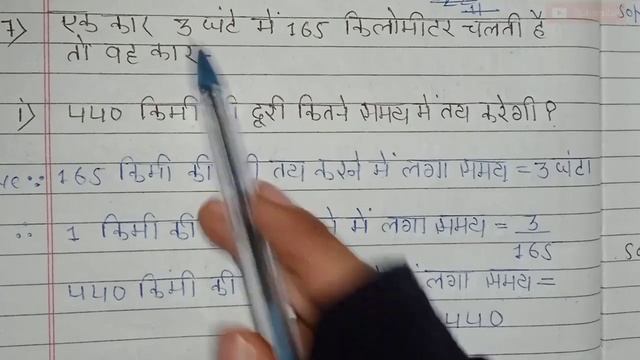 7) एक कार 3 घंटे में 165 किलोमीटर चलती है
तो वह कार
i) 440 किमी दूरी कितने समय में तय करेगी ?
∵ 165 किमी की तय करने में लगा समय = 3 घंटा
∴ 1 किमी की में लगा समय = 3/165
440 किमी की लगा समय =
440